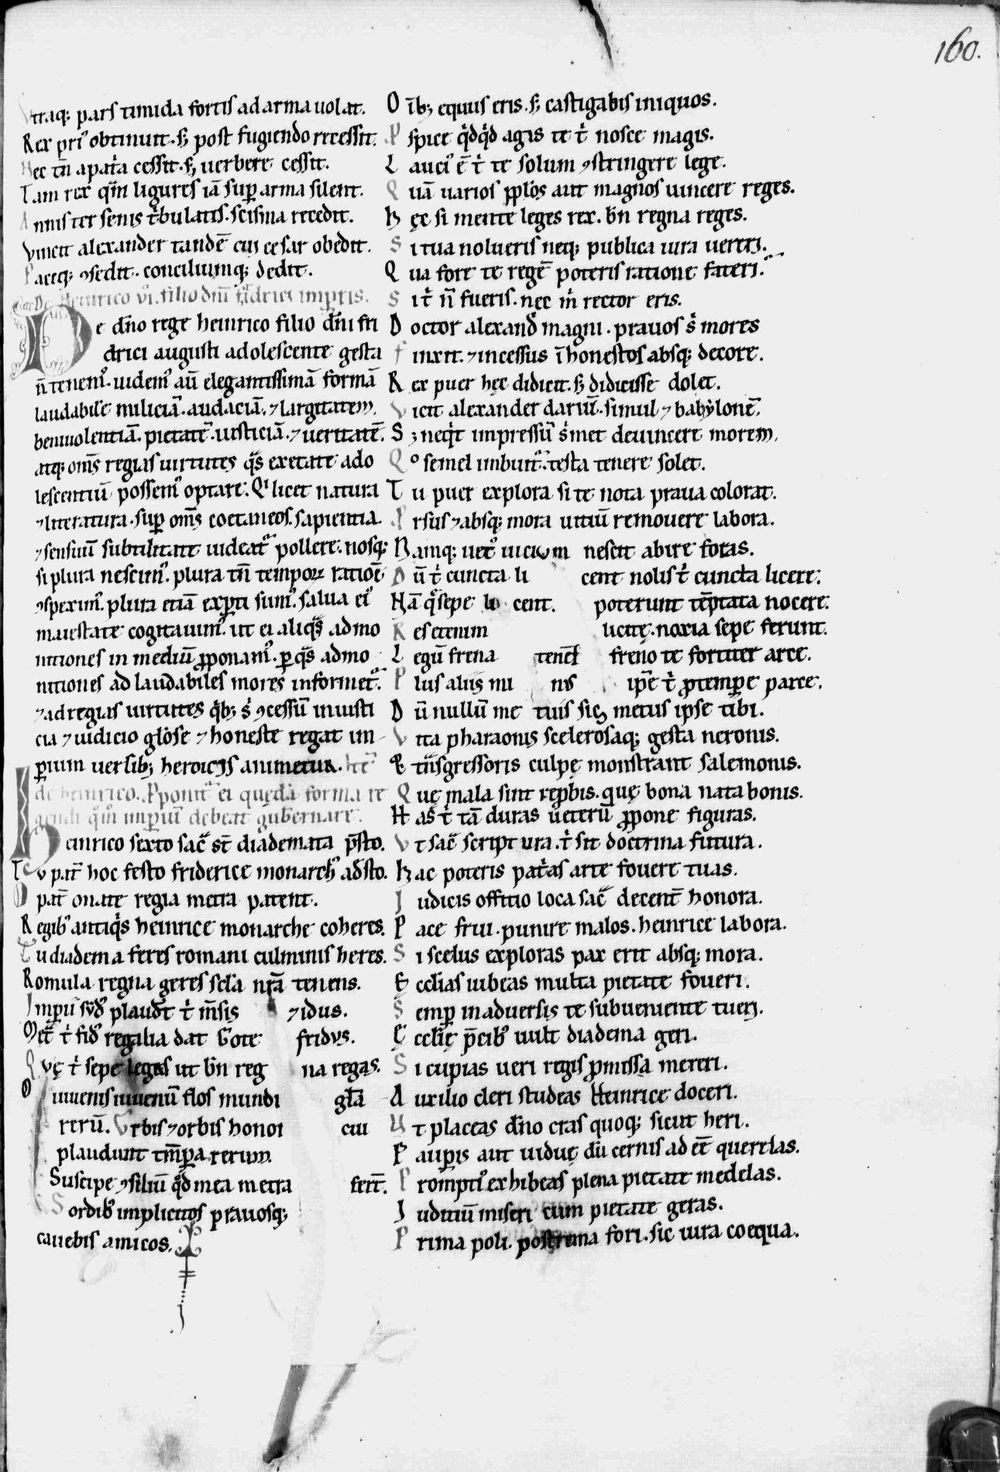 160.
Vtraq; pars timida fortis ad arma uolat.
Rex pri᷒ obtinuit. s; post fugiendo recessit.
Nec tn̄ apat͛a cessit. s; uerbere cessit.
Iam rex q͛m ligures iā suꝑ arma silent.
Annis ter senis t͛bulatis. scisma recedit.
Vincit alexander tandē cui cesar obedit.
Paceq; ꝯsedit. conciliumq; dedit.
De Heinrico vi. filio dn̄i frīdrici impris.
De dn̄o rege heinrico filio dn̄i fri
drici augusti adolescente gesta
n̄ tenem᷒. uidem᷒ aū elegantissimā formā
laudabilē miliciā. audaciā. ⁊ largitatem.
beniuolentiā. pietatē. iusticiā. ⁊ ueritatē.
atq; om̄s regias uirtutes q͛s ex etate ado
lescentiū possem᷒ optare. Q͛ licet natura
⁊ literatura. suꝑ om̄s coetaneos. sapientia
⁊ sensuū subtilitate uideat᷒ pollere. nosq;
si plura nescim᷒. plura tn̄ tempoꝝ ratiōē
ꝯspexim᷒. plura etiā exꝑti sum᷒. salua ei᷒
maiestate cogitauim᷒. ut ei aliq͛s admo
nitiones in mediū ꝓponam᷒. ꝑ q͛s admo
nitiones ad laudabiles mores informet᷒.
⁊ ad regias uirtutes q͛b; s͛ ꝯcessū in iusti
cia ⁊ iudicio gl̄ose ⁊ honeste regat im
ꝑium uersib; heroicis animetur.
de heinrico. Pponit᷒ ei quedā forma re
gendi q͛m imꝑiū debeat gubernare.
Heinrico sexto sac̄ st̄ diademata p̄sto.
Tu pat͛ hoc festo friderice monarch᷒ adsto.
pat͛ onate regia metra patent.
Regib᷒ antiq͛s heinrice monarche coheres.
Tu diadema feres romani culminis heres.
Romula regna geres sc̄la nr̄a tenens.
Imꝑii plaudt t͛ m̄sis ⁊idus.
Met͛ t͛ fid᷒ regalia dat Gote fridus.
Quę t͛ sepe leges ut bn̄ reg na regas.
O iuuenis iuuenū flos mundi gl̄a
rerū. Vrbis ⁊ orbis honor cui
plaudunt tm̄pa rerum
Suscipe ꝯsiliū q͛d mea metra ferт̄.
Sordib᷒ implicitos prauosq;
cauebis amicos.
Oīb; equus eris. s; castigabis iniquos.
Aspice q͛dq͛d agis te t͛ nosce magis.
Lauci᷒ ē t͛ te solum ꝯstringere lege.
Quā uarios pplōs aut magnos uincere reges.
Hęc si mente leges rex. bn̄ regna reges.
Si tua nolueris neq; publica iura uereri.
Qua fore te regē poteris ratione fateri.
Si t͛ n̄ fueris. nec m͛ rector eris.
Doctor alexand͛ magni. prauos s͛ mores
finxit. ⁊ incessus īhonestos absq; decore.
Rex puer hęc didicit. s; didicisse dolet.
Vicit alexander dariū. simul ⁊ babylonē.
S; neq͛t impressū s͛met deuincere morem.
Qo semel imbut᷒. testa tenere solet.
Tu puer explora si te nota praua colorat.
Arsus ⁊ absq; mora uitiū remouere labora.
Namq; uet᷒ uicium nescit abire foras.
Dū t͛ cuncta li cent nolis t͛ cuncta licere.
Nā q͛ sepe li cent. poterunt tēptata nocere.
Res etenim licite. noxia sepe ferunt.
Legū frena tenes freno te fortiter arce.
Plus aliis mi nis ip̄e t͛ ꝓtempe parce.
Dū nullū me tuis sic metus ipse tibi.
Vita pharaonis scelerosaq; gesta neronis.
Et tn̄sgressoris culpę monstrant salemonis.
Quę mala sint rep̱bis. quę bona nata bonis.
Has t͛ tā duras uēterū ꝓpone figuras.
Vt sac̄ script ura. t͛ sit doctrina futura.
Hac poteris pat͛as arte fouere tuas.
Iudicis offitio loca sac̄ decent͛ honora.
Pace frui. punire malos. heinrice labora.
Si scelus exploras pax erit absq; mora.
Ecclias iubeas multa pietate foueri.
Semꝑ in aduersis te subueniente tueri.
Ccelię p̄cib᷒ uult diadema geri.
Si cupias ueri regis ꝓmissa mereri.
Auxilio cleri studeas Heinrice doceri.
Vt placeas dn̄o cras quoq; sicut heri.
Pauꝑis aut uiduę dū cernis ad eē querelas.
Prompt᷒ exhibeas plena pietate medelas.
Iuditiū miseri cum pietate geras.
Prima poli. postrema fori. sic iura coequa.